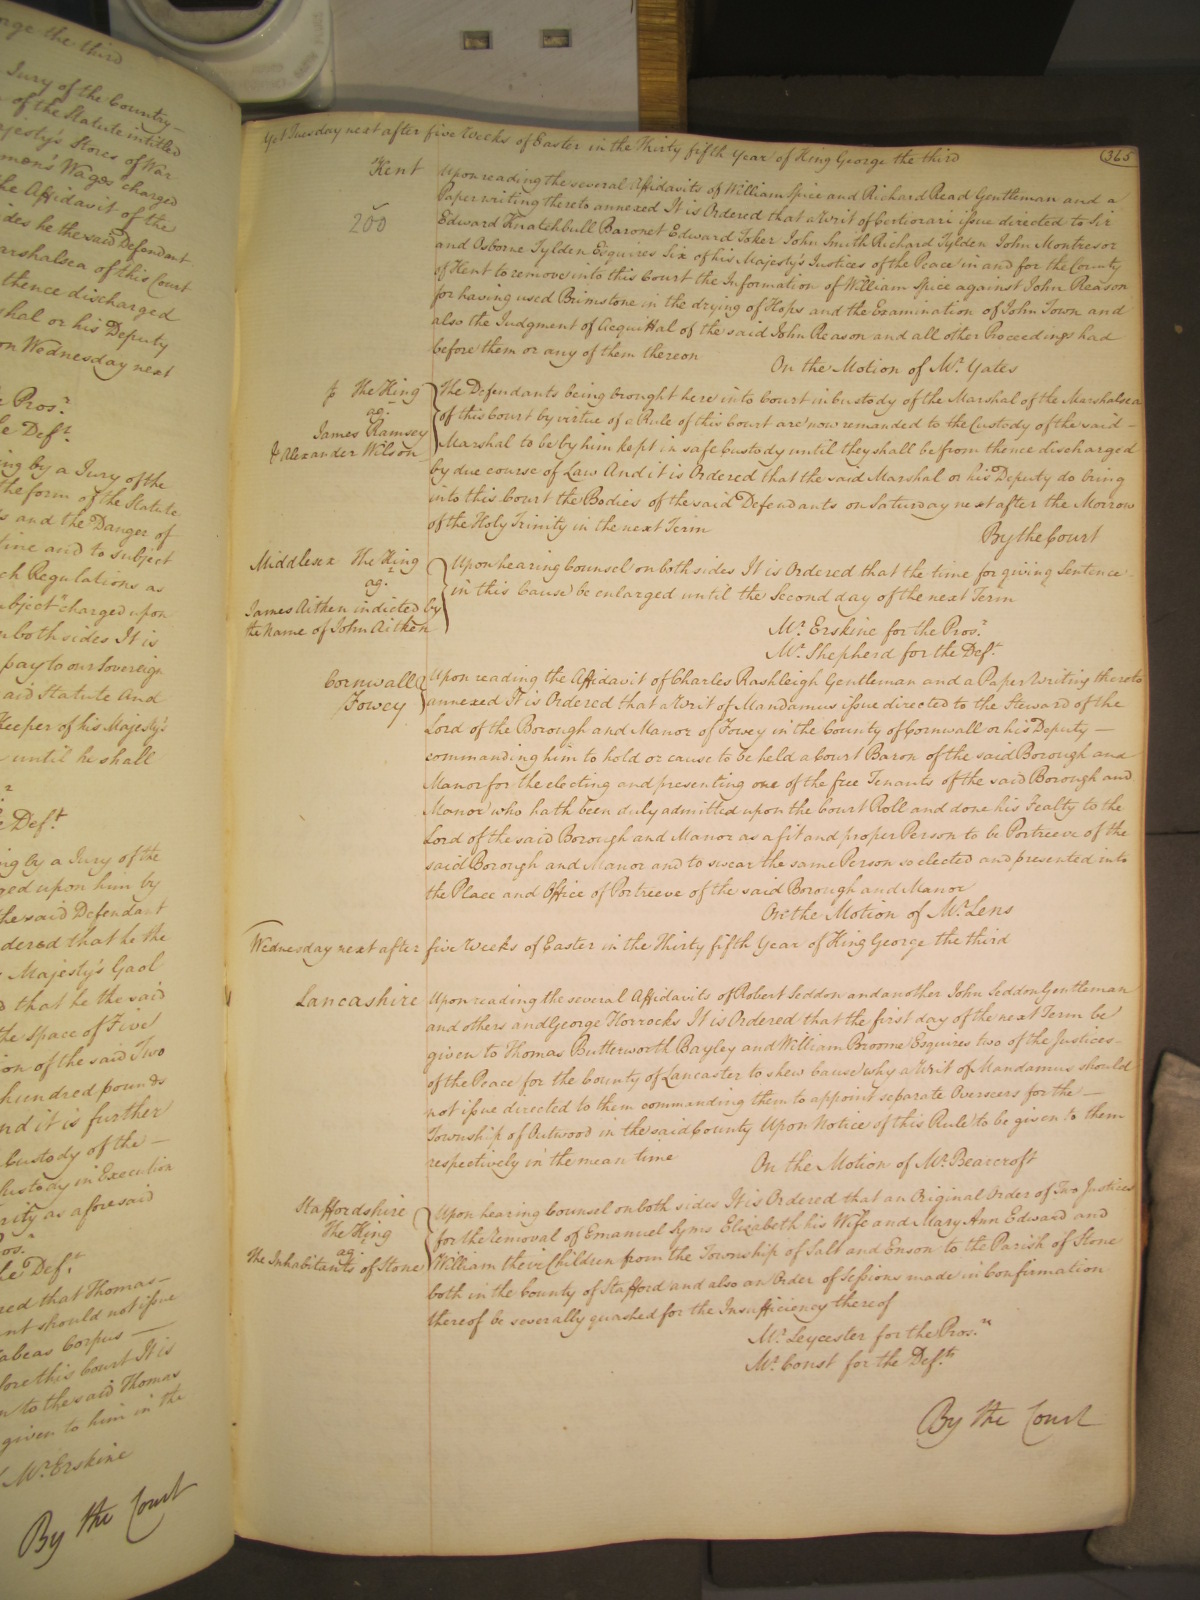 orge the third
Jury of the Country
of the Statute intitled
ajesty's Stores of War
men's Wages charged
the Affidavit of the
ides he the said Defendant
arshalsea of this Court
thence discharged
shal or his Deputy
on Wednesday next
Pros.r
Def.t
ing by a Jury of the
the form of the Statute
s and the Danger of
tine and to subject
ch Regulations as
ubject" charged upon
n both sides It is
pay to our Sovereign
aid Statute And
Keeper of his Majesty's
until he shall
Def.t
ing by a Jury of the
ged upon him by
the said Defendant
dered that he the
Majesty's Gaol
d that he the said
the space of Five
ion of the said Two
hundred pounds
nd it is further
Custody of the —
Custody in Execution
rity as aforesaid
ros.r
the Def.t
red that Thomas —
nt should not issue
abeas Corpus —
fore this Court It is
n to the said Thomas
given to him in the
Mr. Erskine
By the Court
Yet Tuesday next after five Weeks of Easter in the Thirty fifth Year of King George the third
365
Kent
200
Upon reading the several Affidavits of William Spice and Richard Read Gentleman and a
Paper writing thereto annexed It is Ordered that a Writ of Certiorari issue directed to Sir
Edward Knatchbull Baronet Edward Toker John Smith Richard Tylden John Montresor
and Osborne Tylden Esquires Six of his Majesty's Justices of the Peace in and for the County
of Kent to remove into this Court the Information of William Spice against John Reason
for having used Brimstone in the drying of Hops and the Examination of John Town and
also the Judgment of Acquittal of the said John Reason and all other Proceedings had
before them or any of them thereon
On the Motion of Mr. Yates
The King
ag.
James Ramsey
& Alexander Wilson
The Defendants being brought here into Court in Custody of the Marshal of the Marshalsea
of this Court by virtue of a Rule of this Court are now remanded to the Custody of the said —
Marshal to be by him kept in safe Custody until they shall be from thence discharged
by due course of Law And it is Ordered that the said Marshal or his Deputy do bring
into this Court the Bodies of the said Defendants on Saturday next after the Morrow
of the Holy Trinity in the next Term
By the Court
Middlesex The King
ag.
James Aitken indicted by
the Name of John Aitken
Upon hearing Counsel on both sides It is Ordered that the time for giving Sentence
in this Cause be enlarged until the Second day of the next Term
Mr. Erskine for the Pros.r
Mr. Shepherd for the Def.t
Cornwall
Fowey
Upon reading the Affidavit of Charles Rashleigh Gentleman and a Paper Writing thereto
annexed It is Ordered that a Writ of Mandamus issue directed to the Steward of the
Lord of the Borough and Manor of Fowey in the County of Cornwall or his Deputy —
commanding him to hold or cause to be held a Court Baron of the said Borough and
Manor for the electing and presenting one of the free Tenants of the said Borough and
Manor who hath been duly admitted upon the Court Roll and done his Fealty to the
Lord of the said Borough and Manor as a fit and proper Person to be Portreeve of the
said Borough and Manor and to swear the same Person so elected and presented into
the Place and Office of Portreeve of the said Borough and Manor
On the Motion of Mr. Lens
Wednesday next after five Weeks of Easter in the Thirty fifth Year of King George the third
Lancashire
Upon reading the several Affidavits of Robert Seddon and another John Seddon Gentleman
and others and George Horrocks It is Ordered that the first day of the next Term be
given to Thomas Butterworth Bayley and William Broome Esquires two of the Justices
of the Peace for the County of Lancaster to shew cause why a Writ of Mandamus should
not issue directed to them commanding them to appoint separate Overseers for the —
Township of Outwood in the said County Upon Notice of this Rule to be given to them
respectively in the mean time
On the Motion of Mr. Bearcroft
Staffordshire
The King
ag.
the Inhabitants of Stone
Upon hearing Counsel on both sides It is Ordered that an Original Order of Two Justices
for the removal of Emanuel Syms Elizabeth his Wife and Mary Ann Edward and
William their Children from the Township of Salt and Enson to the Parish of Stone
both in the County of Stafford and also an Order of Sessions made in Confirmation
thereof be severally quashed for the Insufficiency thereof
Mr. Leycester for the Pros.rs
Mr. Const for the Def.ts
By the Court